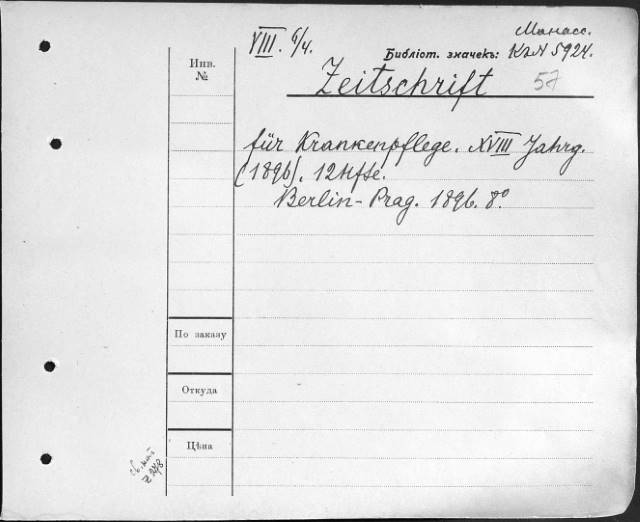 VIII. 6/4.
Манасс.
Библіот. значекъ: КлN 5924.
Инв.
№
Zeitschrift 57
für Krankenpflege. XVIII Jahrg.
(1896). 12 Hfte.
Berlin-Prag. 1896. 8°.
По заказу
Откуда
Цѣна